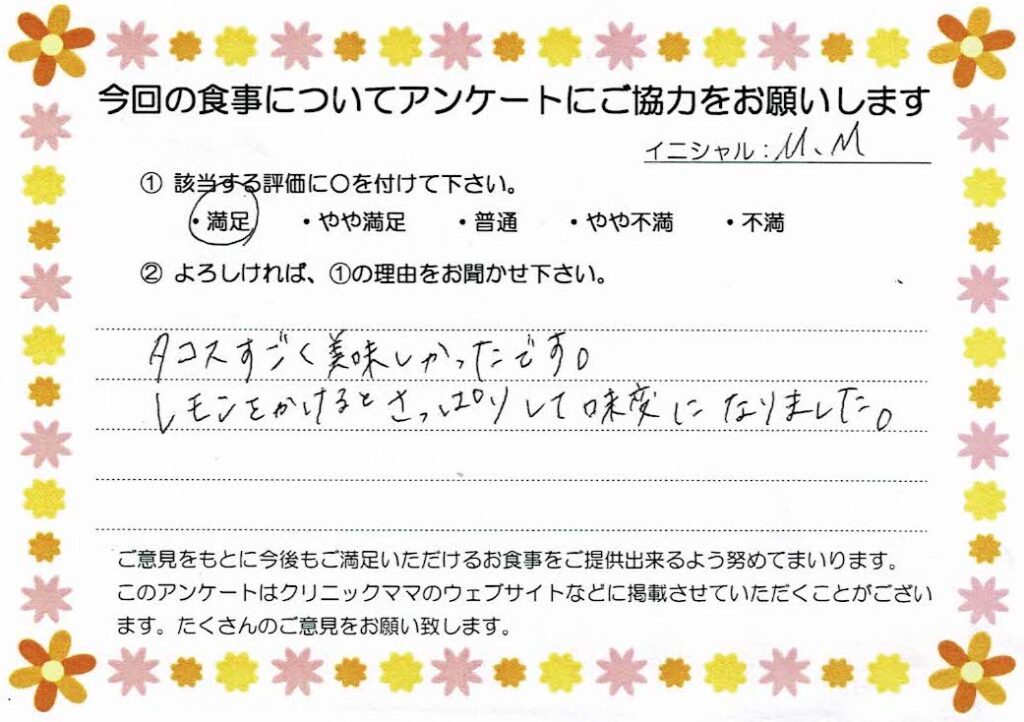 今回の食事についてアンケートにご協力をお願いします
イニシャル：M、M
① 該当する評価に〇を付けて下さい。
・満足 ・やや満足 ・普通 ・やや不満 ・不満
② よろしければ、①の理由をお聞かせ下さい。
タコスすごく美味しかったです。
レモンをかけるとさっぱりして味変になりました。
ご意見をもとに今後もご満足いただけるお食事をご提供出来るよう努めてまいります。
このアンケートはクリニックママのウェブサイトなどに掲載させていただくことがござい
ます。たくさんのご意見をお願い致します。